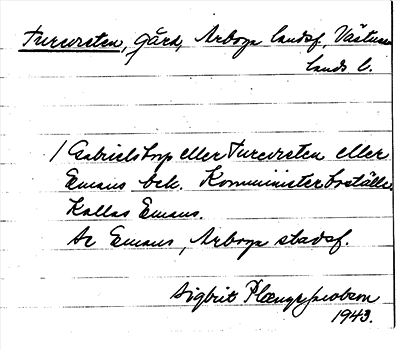 Turcersten, gård, Arboga landsf, Västman
lands l.
/ Gabrielstorp eller Turcersten eller
Emaus och. Komministerboställe.
Kallas Emaus.
Se Emaus, Arboga stadsf.
Sigbrit Plænge Jacobson
1943.